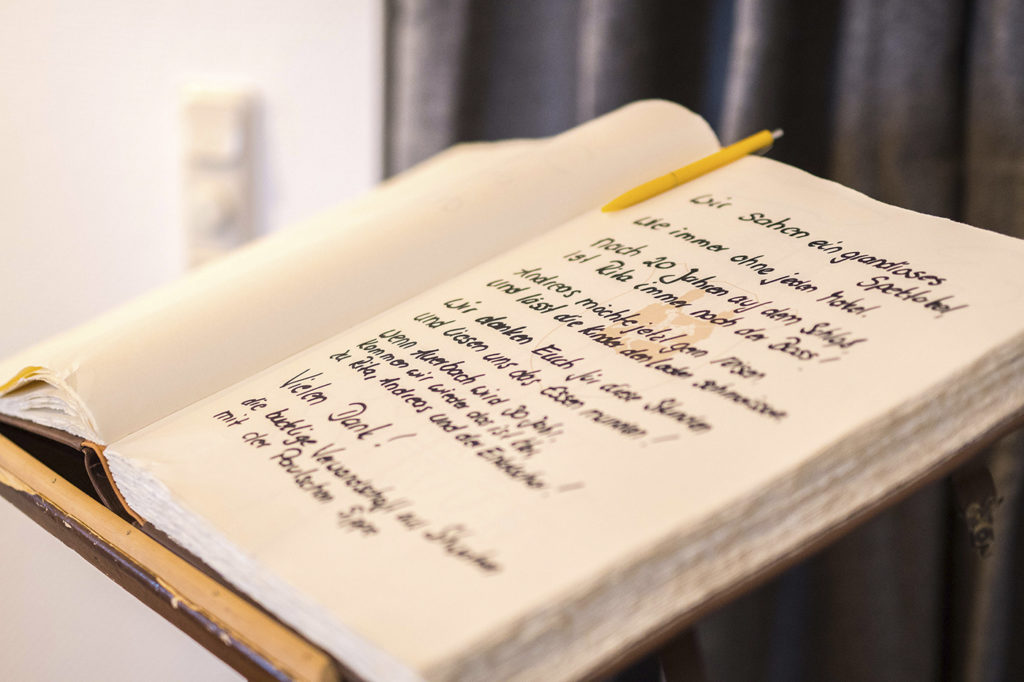 Wir sahen ein grandioses Spektakel,
wie immer ohne jeden Makel
Nach 20 Jahren auf dem Schloß
ist Rita immer noch der Boss!
Andreas möchte jetzt gern
und lässt die Kinder den Laden schmeissen
Wir danken Euch für diese Stunden
und liessen uns das Essen munden!
wenn Auerbach wird 30 Jahr,
kommen wir wieder das ist klar,
du Rita, Andreas und der Enkelschar!
Vielen Dank!
die bucklige Verwandtschaft aus
mit der Paulschen Sippe